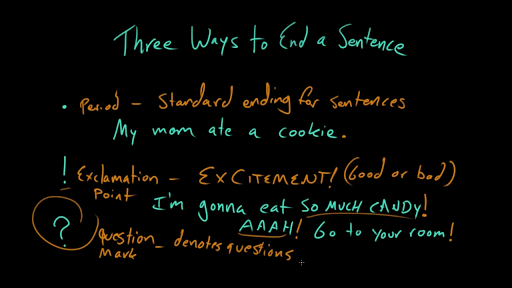 Three Ways to End a Sentence
. Period - Standard ending for sentences
My mom ate a cookie.
! Exclamation Point - EXCITEMENT! (Good or bad)
I'm gonna eat SO MUCH CANDY!
AAAH! Go to your room!
? Question Mark - denotes questions